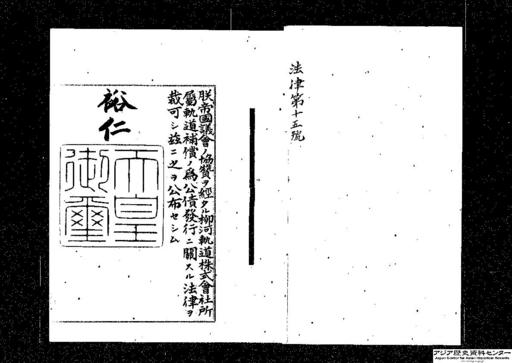 法律第十五號
朕帝國議會ノ協贊ヲ經タル柳河軌道株式會社所
屬軌道補償ノ爲公債發行ニ關スル法律ヲ
裁可シ玆ニ之ヲ公布セシム
裕仁
天皇
御璽
アジア歴史資料センター
Japan Center for Asian Historical Records